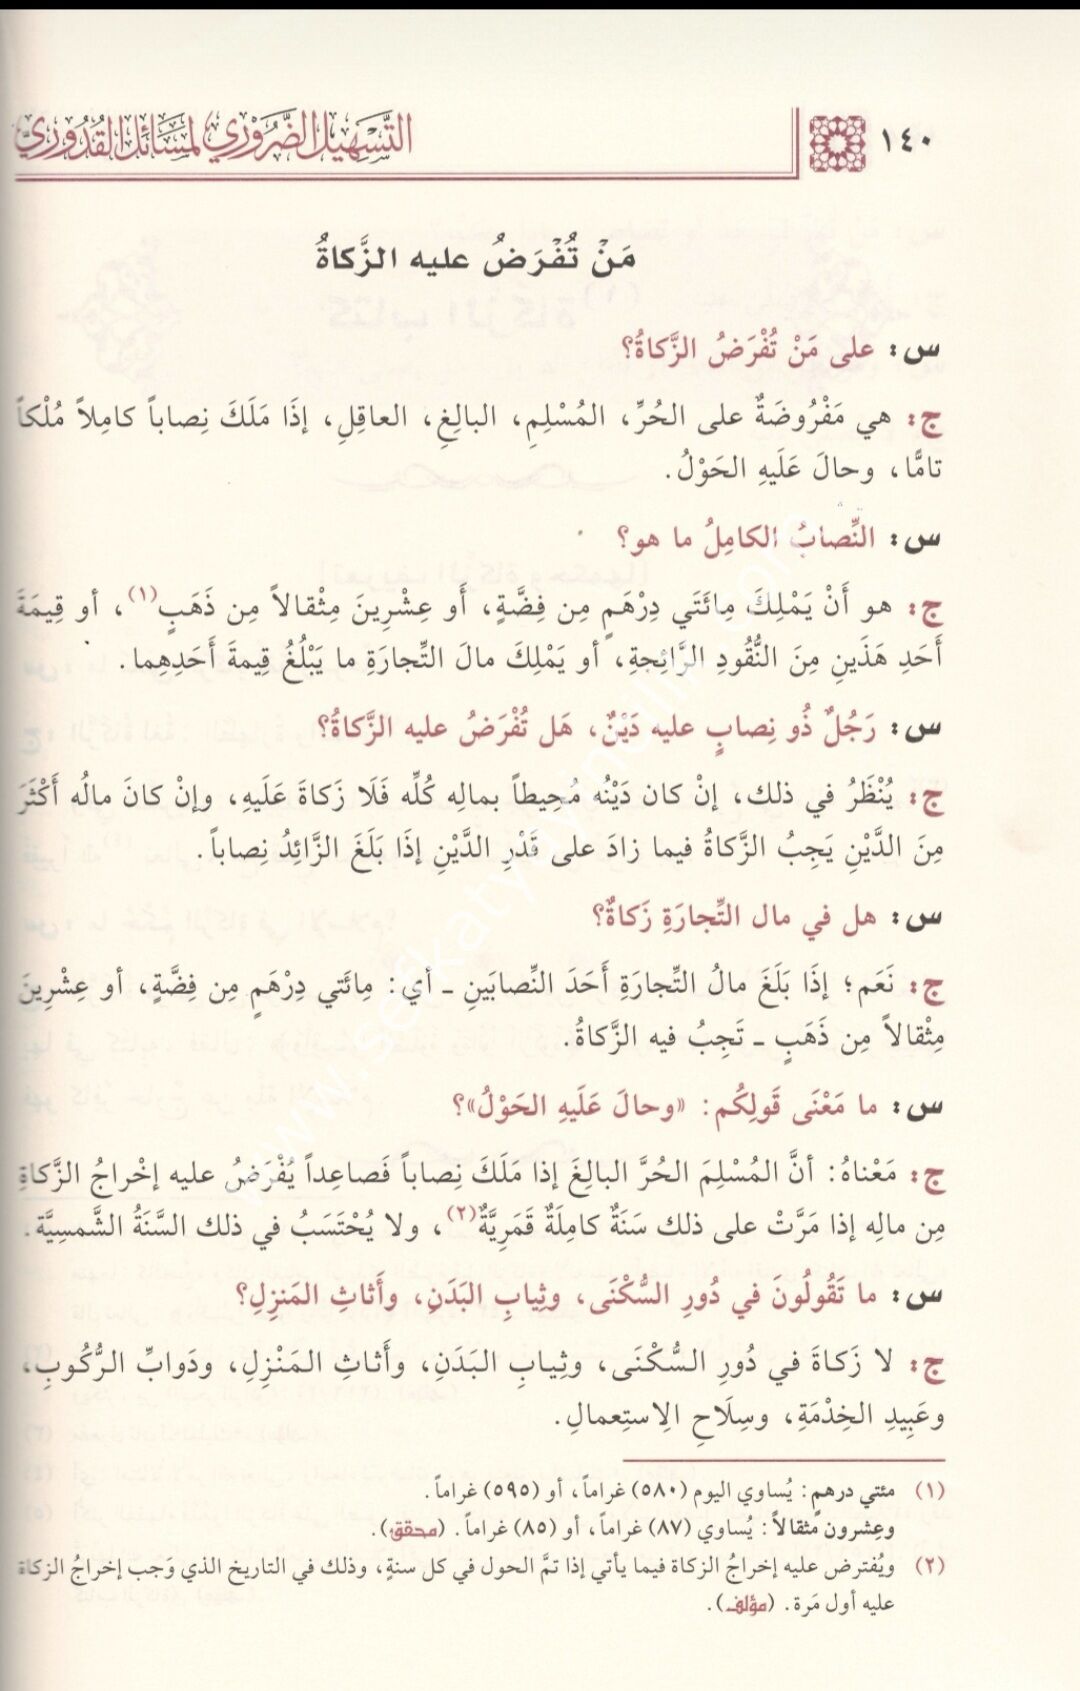 ١٤٠
التَّسْهِيلُ الضَّرُوْرِي لِمَسَائِلِ القُدُوْرِيّ
مَنْ تُفْرَضُ عليه الزَّكاةُ
س: على مَنْ تُفْرَضُ الزَّكاةُ؟
ج: هي مَفْرُوضَةٌ على الحُرِّ، المُسْلِمِ، البالِغِ، العاقِلِ، إذَا مَلَكَ نِصاباً كامِلاً مُلْكاً
تامًّا، وحالَ عَلَيهِ الحَوْلُ.
س: النِّصابُ الكامِلُ ما هو؟
ج: هو أَنْ يَمْلِكَ مِائَتَي دِرْهَمٍ مِن فِضَّةٍ، أَو عِشْرِينَ مِثْقالاً مِن ذَهَبٍ(١)، أو قِيمَةَ
أَحَدِ هَذَينِ مِنَ النُّقُودِ الرَّائِجةِ، أو يَمْلِكَ مالَ التِّجارَةِ ما يَبْلُغُ قِيمةَ أَحَدِهِما.
س: رَجُلٌ ذُو نِصابٍ عليه دَيْنٌ، هَل تُفْرَضُ عليه الزَّكاةُ؟
ج: يُنْظَرُ في ذلك، إنْ كان دَيْنُه مُحِيطاً بمالِه كُلِّه فَلَا زَكاةَ عَلَيهِ، وإنْ كانَ مالُه أَكْثَرَ
مِنَ الدَّيْنِ يَجِبُ الزَّكاةُ فيما زادَ على قَدْرِ الدَّيْنِ إذَا بَلَغَ الزَّائِدُ نِصاباً.
س: هل في مال التِّجارَةِ زَكاةٌ؟
ج: نَعَم؛ إذَا بَلَغَ مالُ التِّجارَةِ أَحَدَ النِّصابَينِ ـ أي: مِائَتي دِرْهَمٍ مِن فِضَّةٍ، أو عِشْرِينَ
مِثْقالاً مِن ذَهَبٍ ـ تَجِبُ فيه الزَّكاةُ.
س: ما مَعْنَى قَولِكُم: «وحالَ عَلَيهِ الحَوْلُ»؟
ج: مَعْناهُ: أنَّ المُسْلِمَ الحُرَّ البالِغَ إذا مَلَكَ نِصاباً فَصاعِداً يُفْرَضُ عليه إخْراجُ الزَّكاةِ
مِن مالِه إذا مَرَّتْ على ذلك سَنَةٌ كامِلَةٌ قَمَرِيَّةٌ(٢)، ولا يُحْتَسَبُ في ذلك السَّنَةُ الشَّمسِيَّة.
س: ما تَقُولُونَ في دُورِ السُّكْنَى، وثِيابِ البَدَنِ، وأَثاثِ المَنزِلِ؟
ج: لا زَكاةَ في دُورِ السُّكْنَى، وثِيابِ البَدَنِ، وأَثاثِ المَنْزِلِ، ودَوابِّ الرُّكُوبِ،
وعَبِيدِ الخِدْمَةِ، وسِلَاحِ الِاستِعمالِ.
(١) مئتي درهمٍ: يُساوي اليوم (٥٨٠) غراماً، أو (٥٩٥) غراماً.
وعِشرون مثقالاً: يُساوي (٨٧) غراماً، أو (٨٥) غراماً. (محقق).
(٢) ويُفترض عليه إخراجُ الزكاة فيما يأتي إذا تمَّ الحول في كل سنةٍ، وذلك في التاريخ الذي وَجب إخراجُ الزكاة
عليه أول مَرة. (مؤلف).